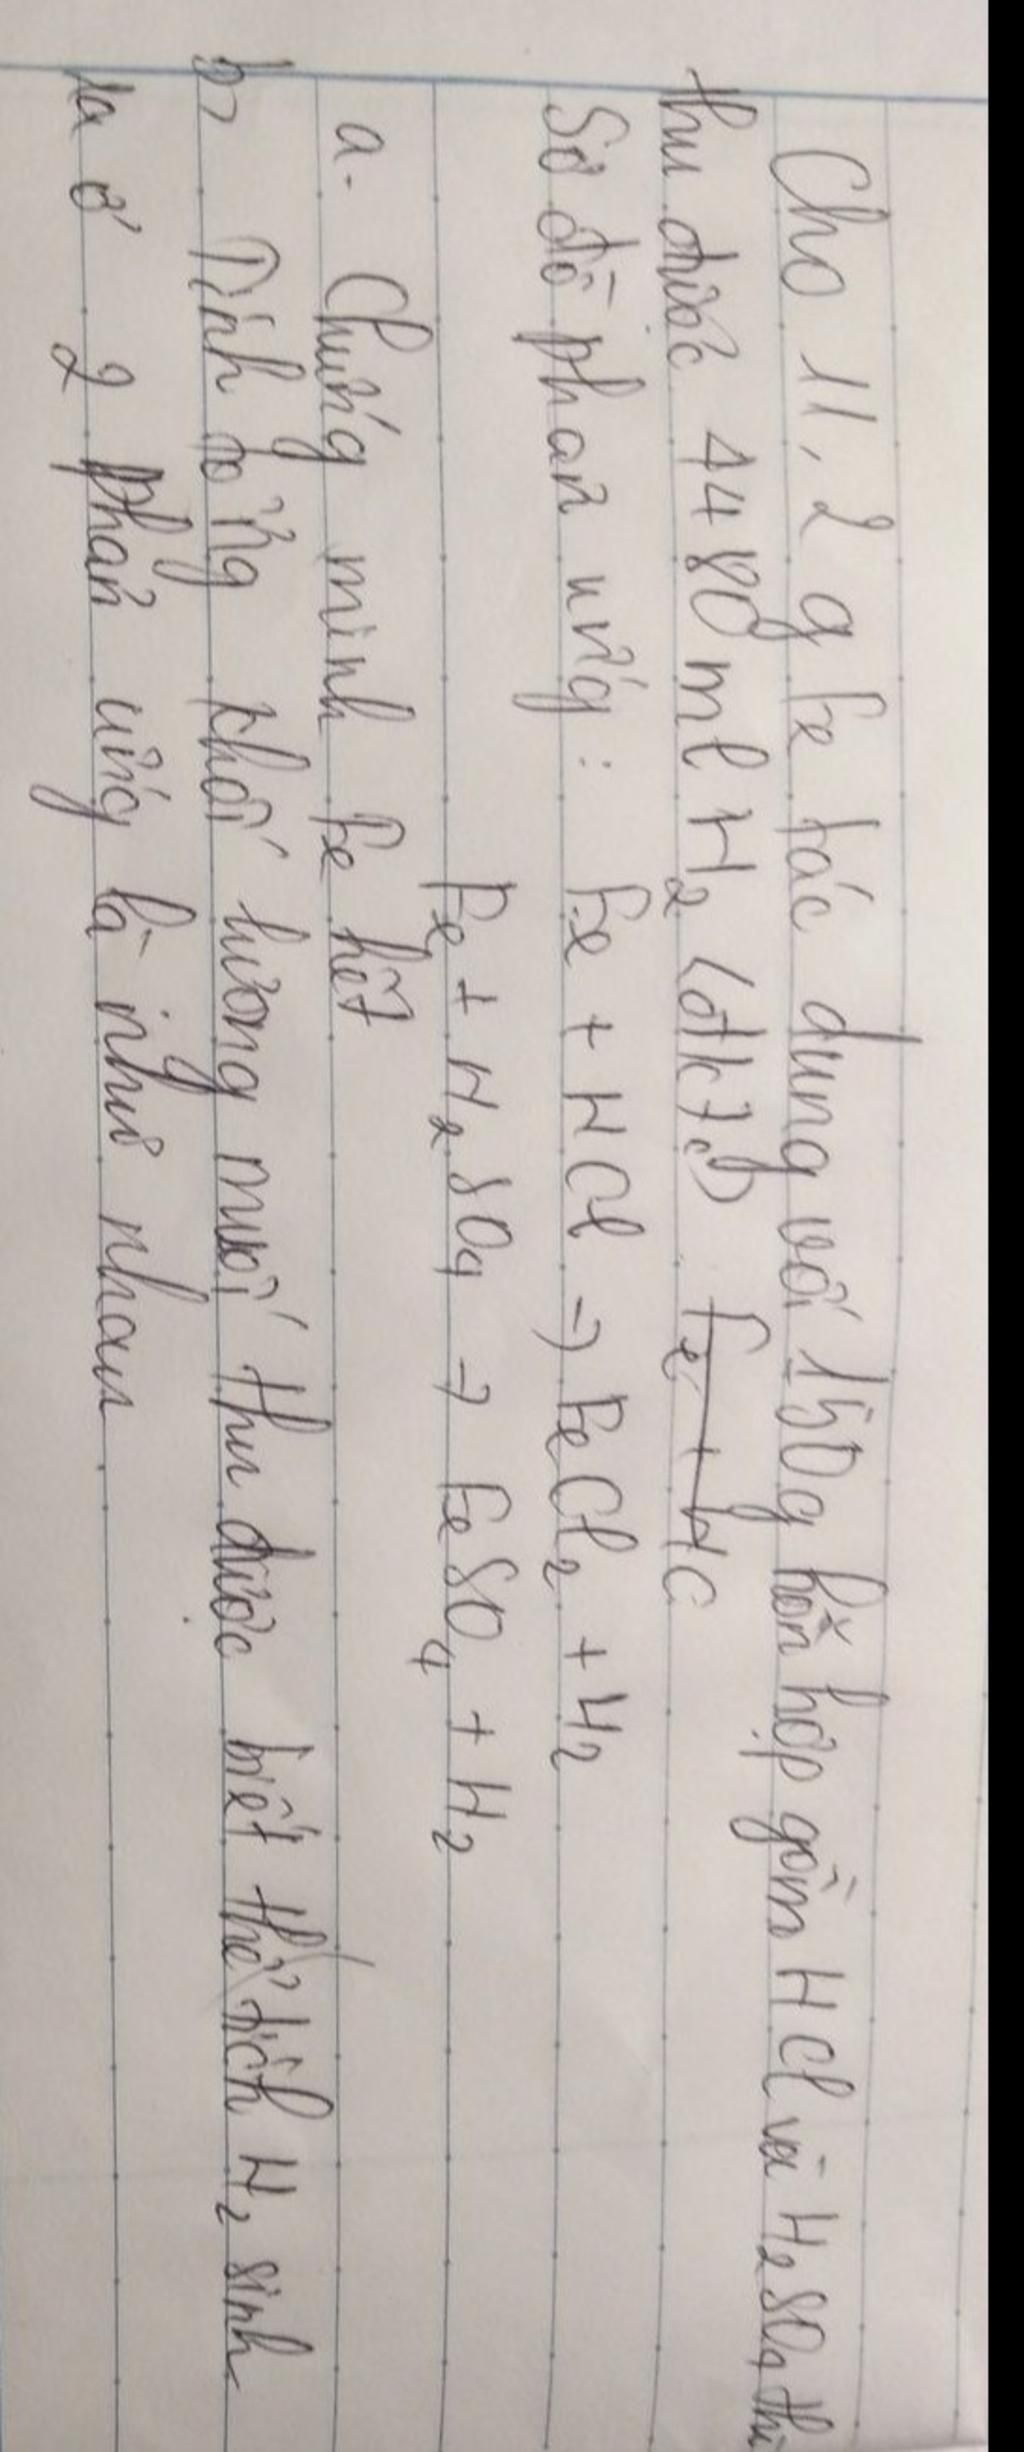 Cho 11,2 g Fe tác dụng với 150g hỗn hợp gồm HCl và H2SO4 thì
thu được 4480 ml H2 (đktc) Fe + HC
Sơ đồ phản ứng: Fe + HCl → FeCl2 + H2
Fe + H2SO4 → FeSO4 + H2
a. Chứng minh Fe hết
b, Tính tổng khối lượng muối thu được biết thể tích H2 sinh
ra ở 2 phản ứng là như nhau